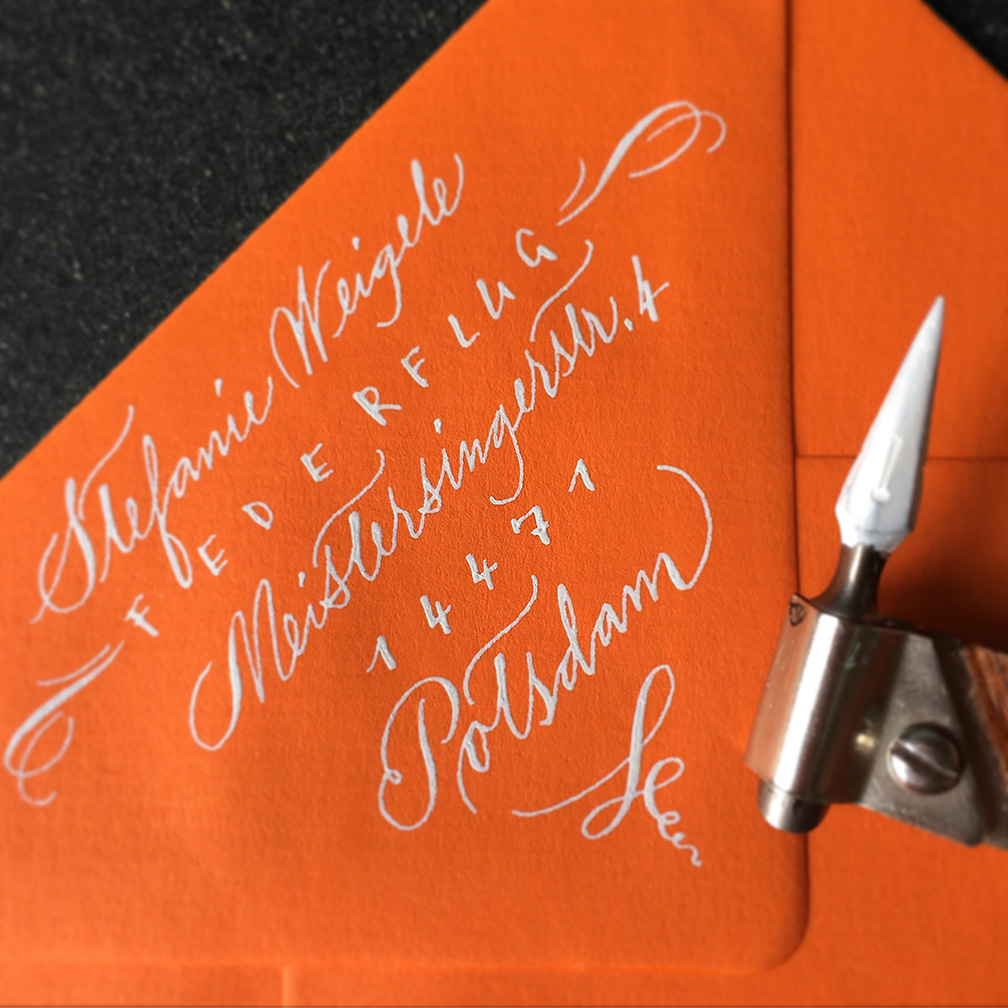 Stefanie Weigele
FEDERFLUG
Meistersingerstr. 4
14471
Potsdam